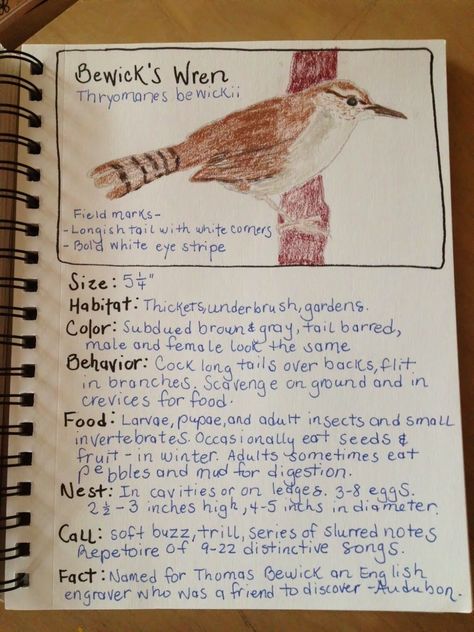 Bewick's Wren
Thryomanes bewickii
Field marks-
-Longish tail with white corners
-Bold white eye stripe
Size: 5 1/4"
Habitat: Thickets, underbrush, gardens.
Color: Subdued brown & gray, tail barred,
male and female look the same
Behavior: Cock long tails over backs, flit
in branches. Scavenge on ground and in
crevices for food.
Food: Larvae, pupae, and adult insects and small
invertebrates. Occasionally eat seeds &
fruit - in winter. Adults sometimes eat
pebbles and mud for digestion.
Nest: In cavities or on ledges. 3-8 eggs.
2 1/2 - 3 inches high, 4-5 inchs in diameter.
Call: soft buzz, trill, series of slurred notes
Repetoire of 9-22 distinctive songs.
Fact: Named for Thomas Bewick an English
engraver who was a friend to discover -Audubon.